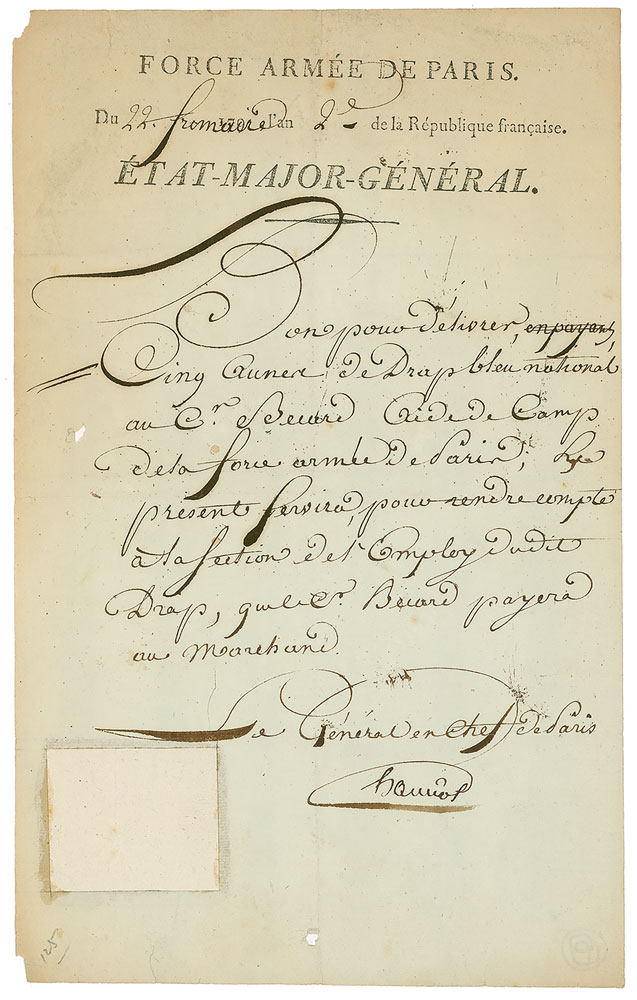 FORCE ARMÉE DE PARIS.
Du 22. fromaire 179 l'an 2e de la République française.
ÉTAT-MAJOR-GÉNÉRAL.
Bon pour Délivrer, en payant,
Cinq Aunes de Drap bleu national
au Cn. Becard Aide de Camp
de la force armée de Paris; Le
présent servira, pour rendre compte
à la section de l'Employ dudit
Drap, que le Cn. Becard payera
au Marchand.
Le Général en Chef de Paris
hanriot
125